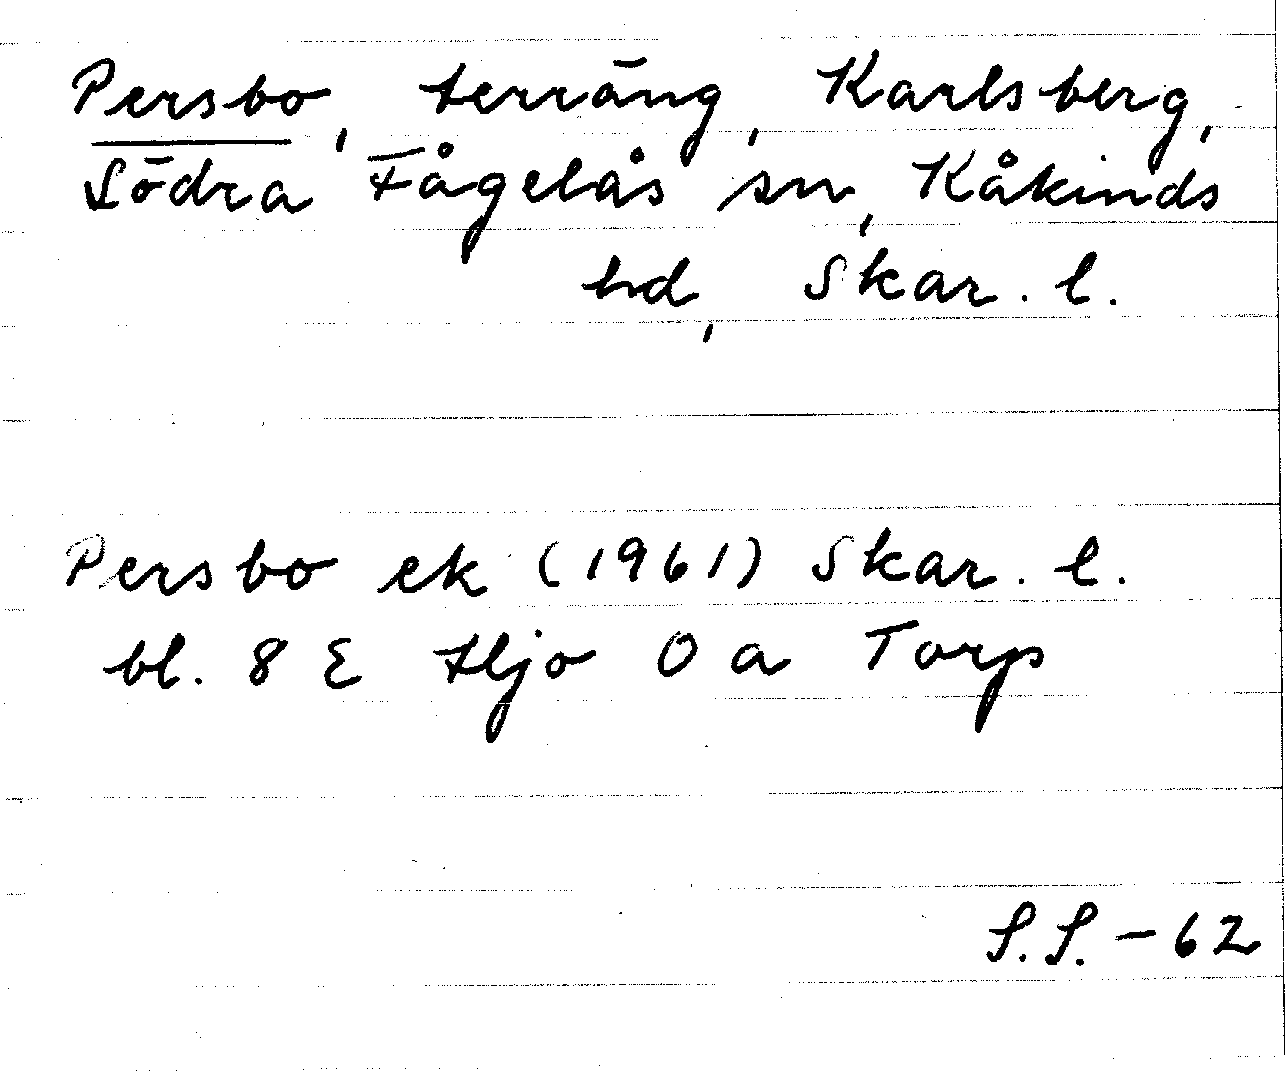 Persbo, terräng, Karlsberg,
Södra Fågelås sn, Kåkinds
hd, Skar. l.
Persbo ek (1961) Skar. l.
bl. 8 E Hjo 0 a Torp
S.S. - 62